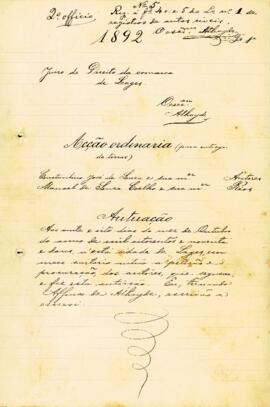 Nº 5
2º officio. Reg. a fs 4 e 5 do Lº nº 1 de
registros de autos civeis.
1892 O escrm Athayde
Juizo de Direito da comarca
de Lages.
Escrm
Athayde
Acção ordinaria (para entrega
de terras)
José de Souza e sua mer Autores
Manoel de Souza Coelho e sua mer Réos
Autuação
Aos vinte e oito dias do mez de Outubro
do anno de mil oitocentos e noventa
e dous, n'esta cidade de Lages, em
meu cartorio autúo a petição e
procuração dos autores, que seguem,
e fiz esta autuação. Eu, Fernando
Affonso de Athayde, escrivão o
escrevi